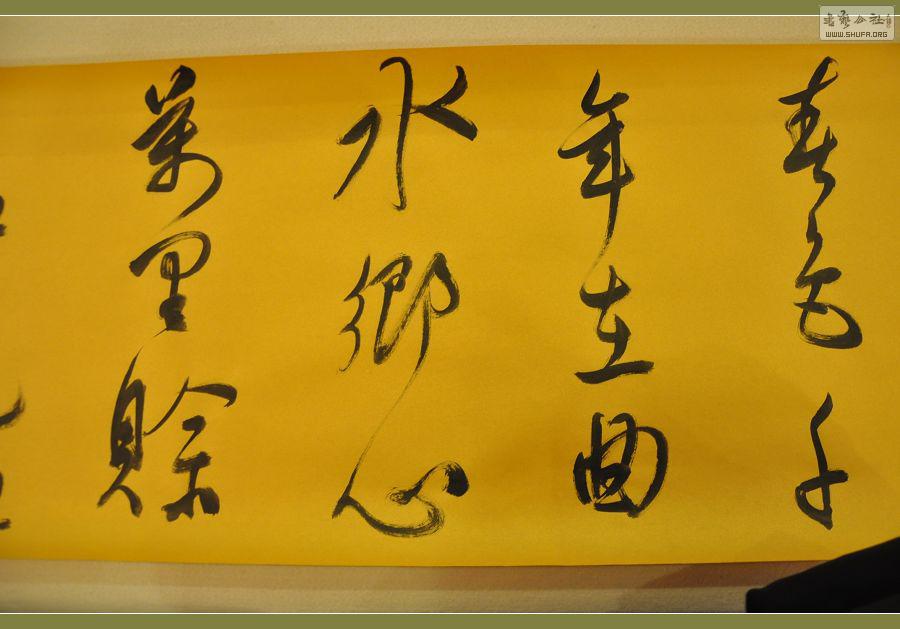 春色千
年在曲
水鄉心
萬里賒
書藝公社
WWW.SHUFA.ORG